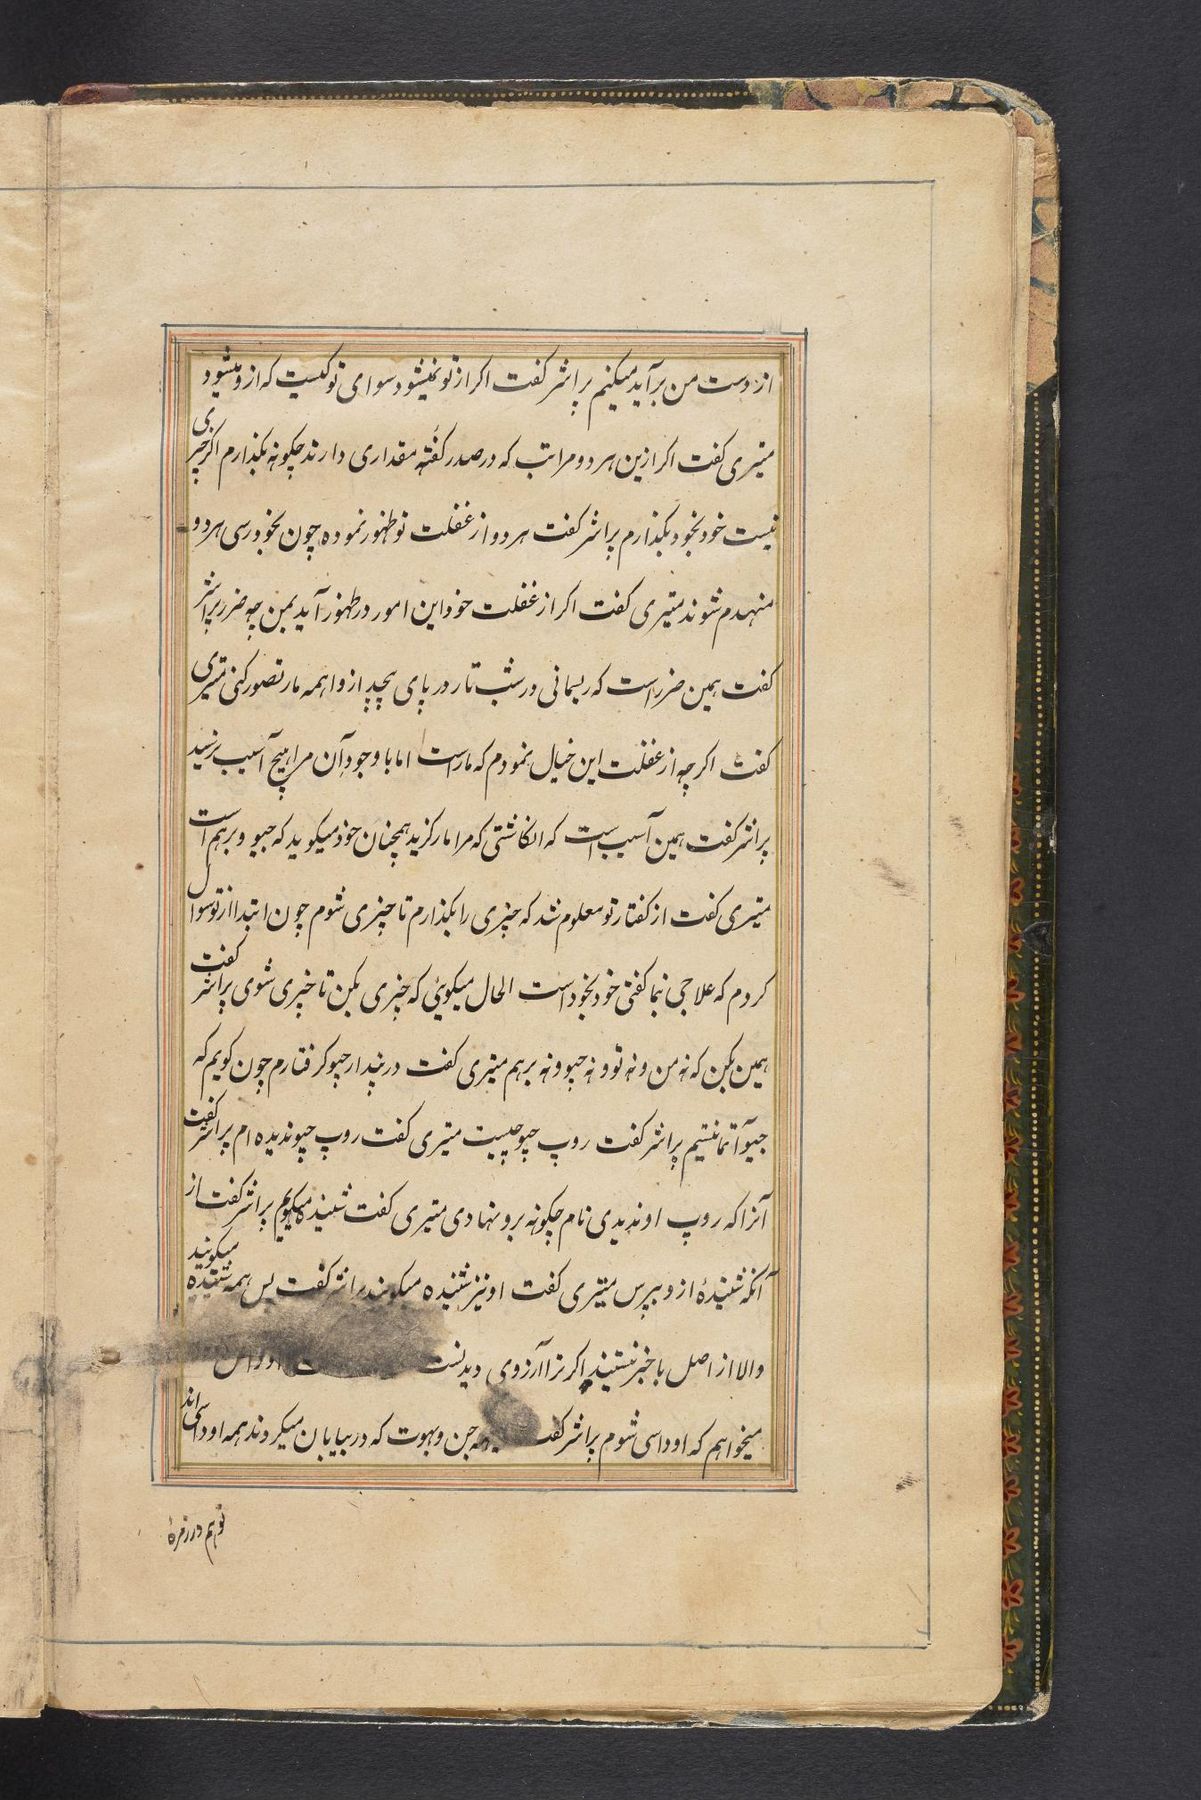 از دست من برآید میکنم پراشر کفت اکر از تو نمیشود سوای تو کیست که از و میشود
میتری کفت اکر ازین هر دو مراتب که در صدر کفته مقداری دارند چکونه بکذارم اکر چیزی
نیست خود بخود بکذارم پراشر کفت هر دو از غفلت تو ظهور نموده چون بخود رسی هر دو
منهدم شوند میتری کفت اکر از غفلت خود این امور در ظهور آید بمن چه ضرر پراشر
کفت همین ضرر است که ریسمانی در شب تار در پای پیچد از واهمه مار تصور کنی میتری
کفت اکر چه از غفلت این خیال نمودم که مار است اما با وجود آن مرا هیچ آسیب نرسید
پراشر کفت همین آسیب است که انکاشتی که مرا مار کزید همچنان خود میکوید که جیو و برهم است
میتری کفت از کفتار تو معلوم شد که چیزی را بکذارم تا چیزی شوم چون ابتدا از تو سوال
کردم که علاجی نما کفتی خود بخود است الحال میکوئی که چیزی بکن تا چیزی شوی پراشر کفت
همین بکن که نه من و نه تو و نه جیو و نه برهم میتری کفت در پندار جیو کرفتارم چون کویم که
جیوآتما نیستیم پراشر کفت روپ جیو چیست میتری کفت روپ جیو ندیده ام پراشر کفت
آنرا که روپ او ندیدی نام چکونه برو نهادی میتری کفت شنیده میکویم پراشر کفت از
آنکه شنیدهٔ از و بپرس میتری کفت او نیز شنیده میکوید پراشر کفت پس همه شنیده میکویند
والا از اصل با خبر نیستند اکر ترا آرزوی دیدنست
میخواهم که اوداسی شوم پراشر کفت همه جن و بهوت که در بیابان میکردند همه اوداسی اند
تو هم در زمرهٔ